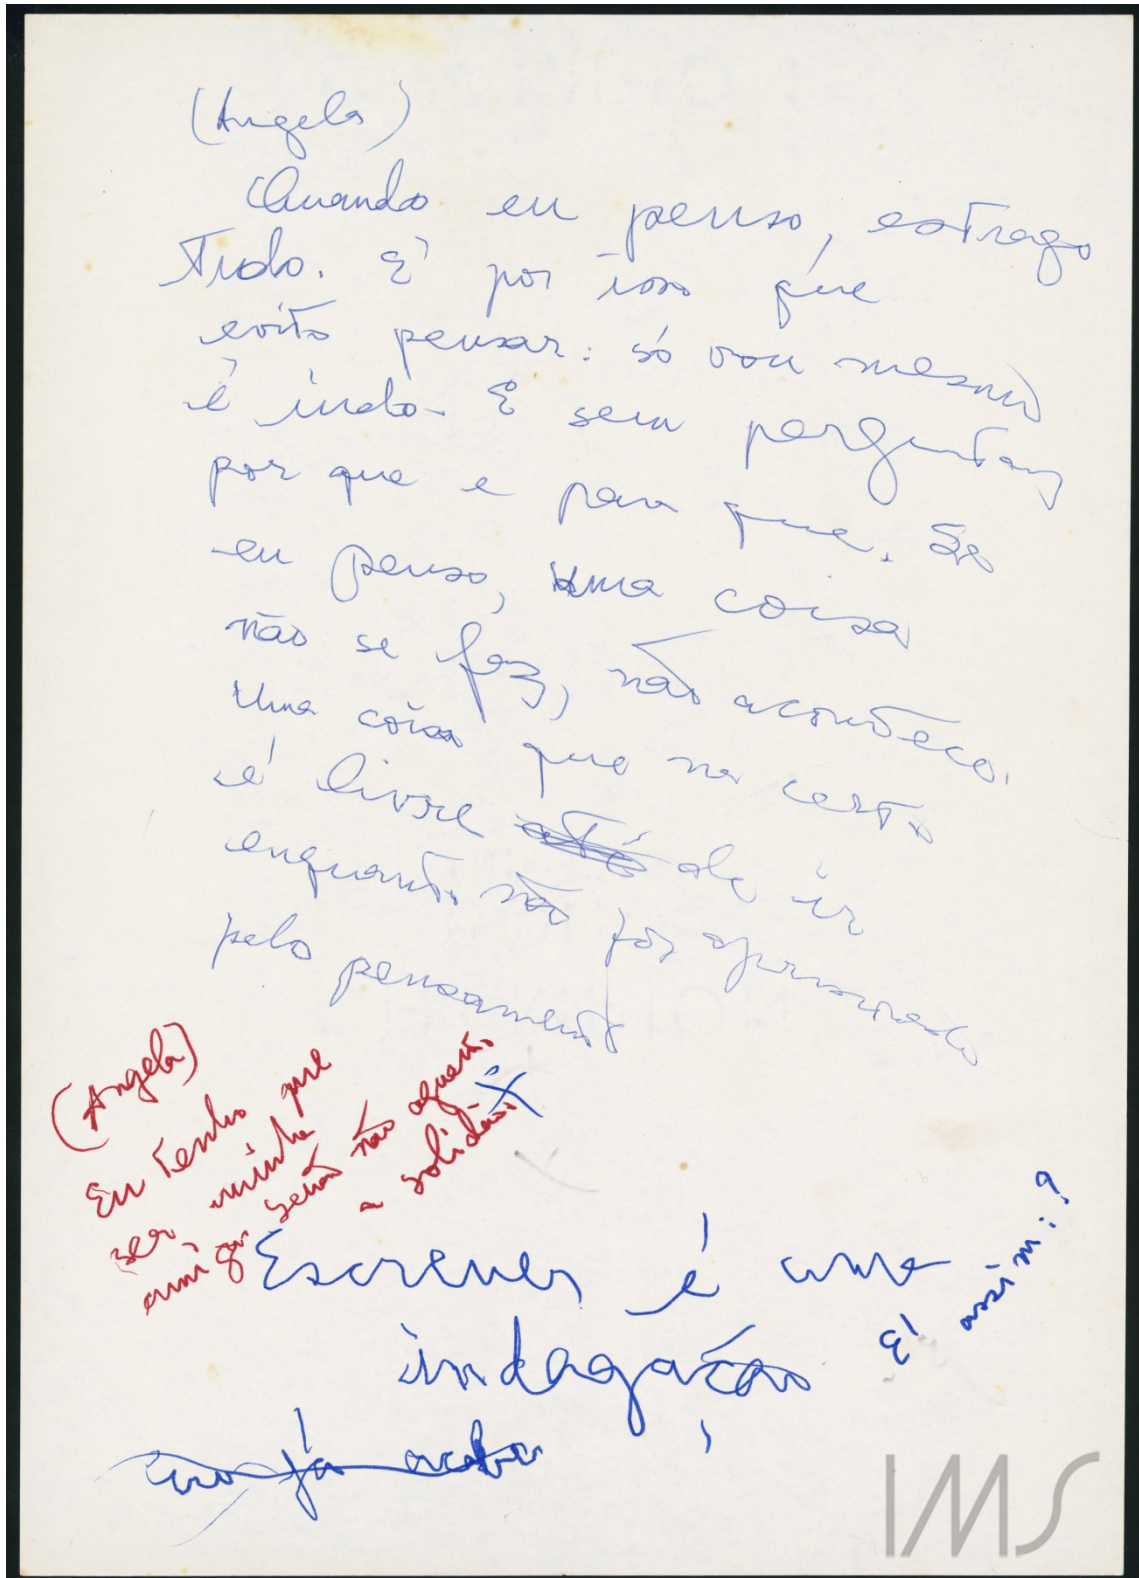 (Angela)
Quando eu penso, estrago
tudo. E' por isso que
evito pensar: só vou mesmo
é indo. E sem perguntar
por que e para que. Se
eu penso, uma coisa
não se faz, não aconteço.
Uma coisa que na certa
é livre até de ir
enquanto não for aprisionada
pelo pensamento
(Angela)
Eu tenho que
ser minha
amiga senão não aguento
a solidão.
X
Escrever é uma
indagação.
É assim: ?
já acabou
IMS